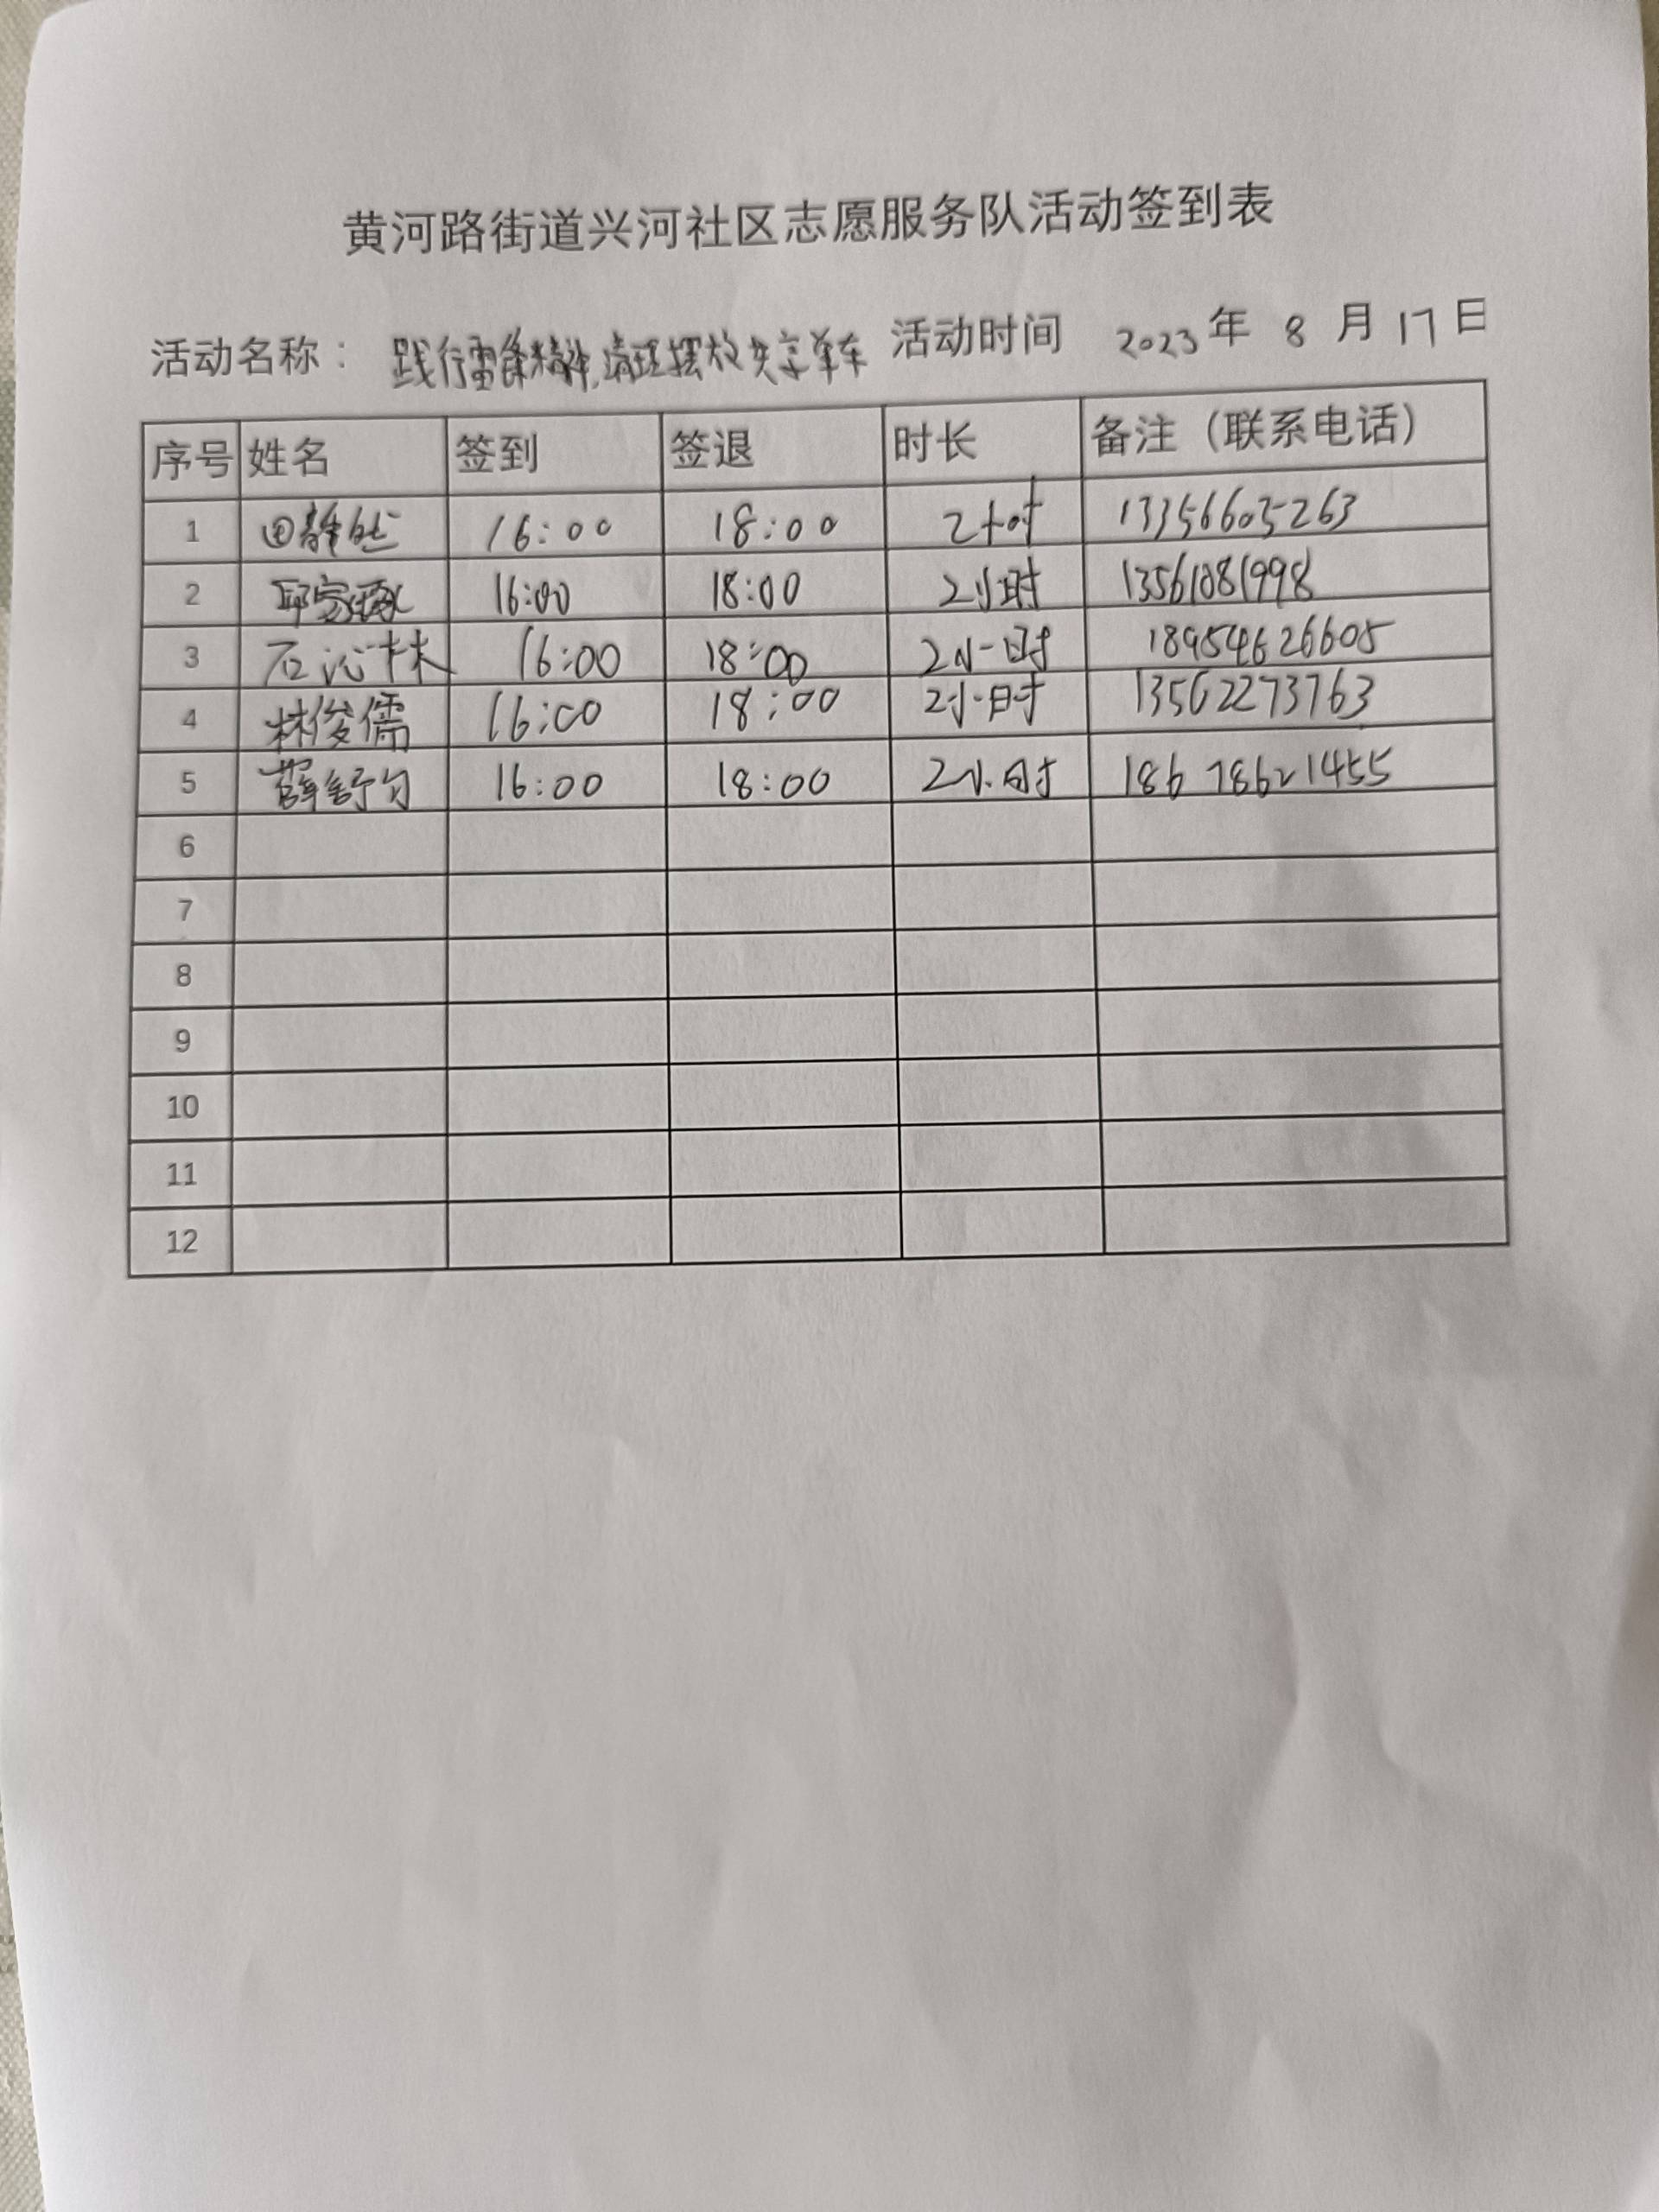 黄河路街道兴河社区志愿服务队活动签到表
活动名称： 践行雷锋精神,清理摆放共享单车 活动时间 2023年 8月17日
序号 姓名 签到 签退 时长 备注（联系电话）
1 田静然 16:00 18:00 2小时 13356605263
2 邱家 16:00 18:00 2小时 13561081998
3 石沁林 16:00 18:00 2小时 18954626605
4 林俊儒 16:00 18:00 2小时 13562273763
5 薛舒匀 16:00 18:00 2小时 18678621455
6
7
8
9
10
11
12